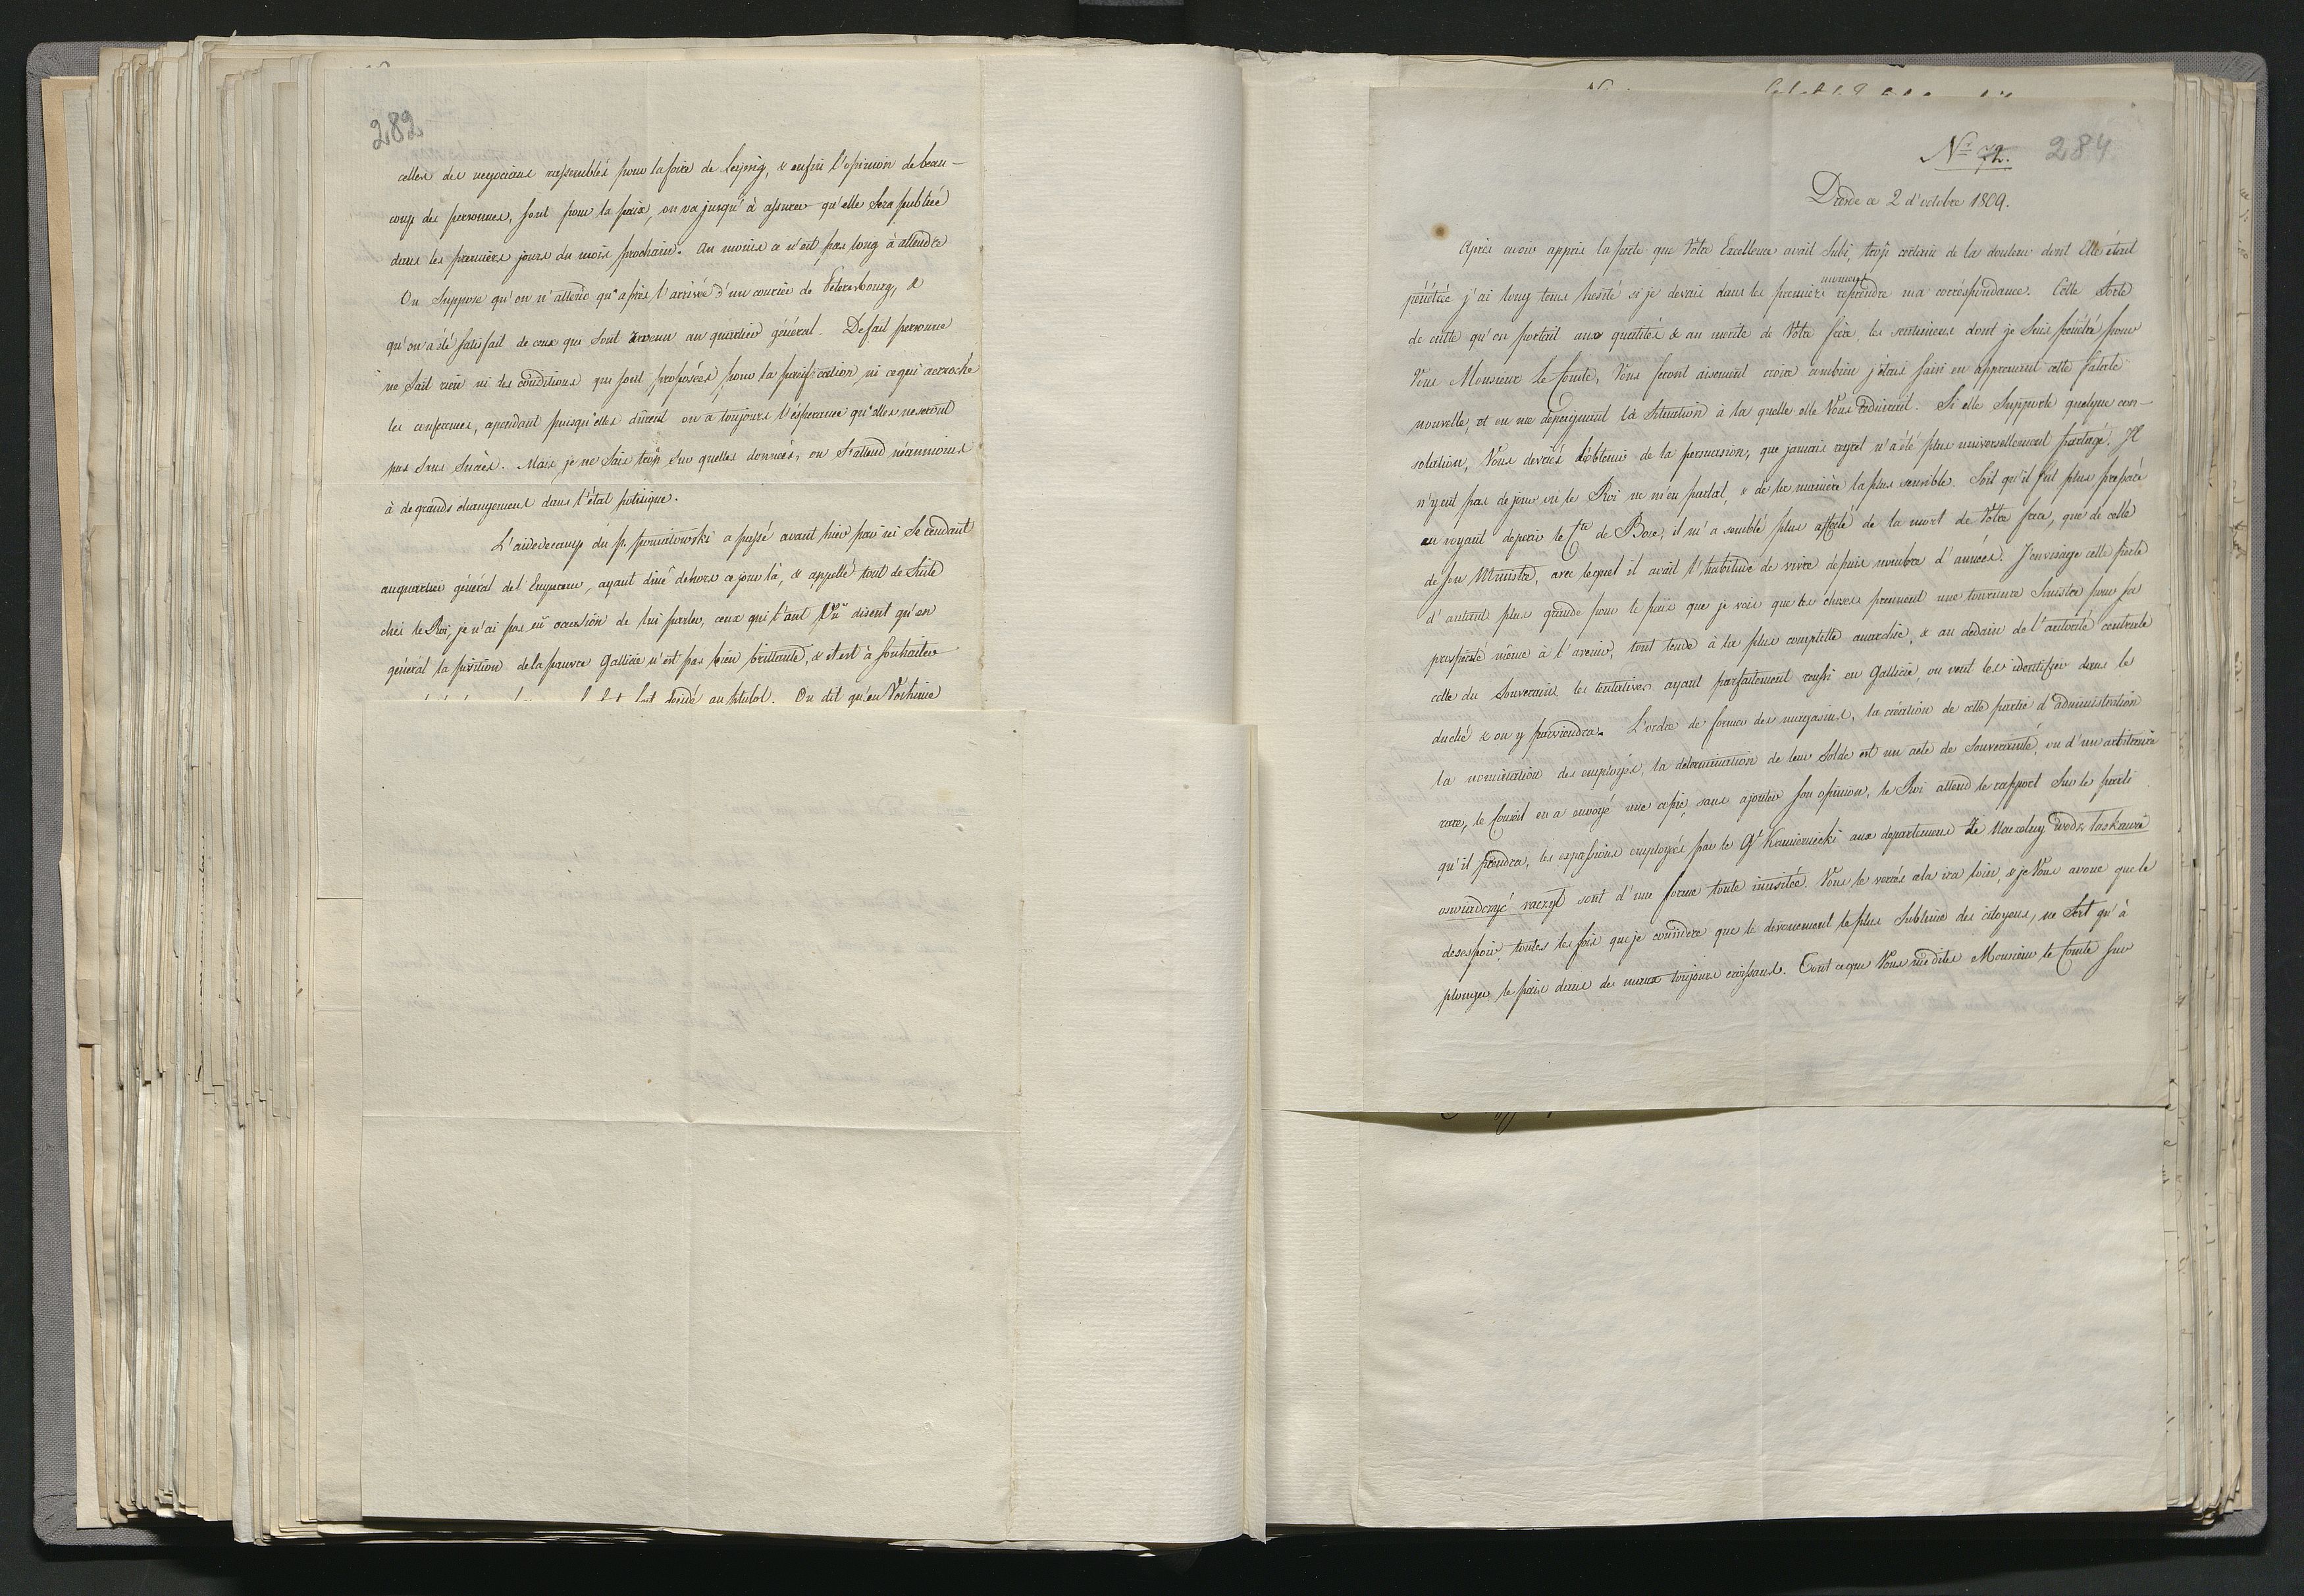 282
celles des negocians rassemblés pour la foire de Leipzig, & enfin l'opinion de beau-
coup des personnes, sont pour la paix, on va jusqu'à assurer qu'elle sera publiée
dans les premiers jours du mois prochain. au moins ce n'est pas long à attendre
On suppose qu'on n'attend qu'après l'arrivée d'un courier de Petersbourg, &
qu'on a été satisfait de ceux qui sont au quartier général. De fait personne
ne sait rien ni des conditions qui sont proposées pour la pacification ni ce qui accroche
les conferences, cependant puisqu'elles durent on a toujours l'ésperance qu'elles ne seront
pas sans succès. Mais je ne sais trop sur quelles donneés, on s'attend néanmoins
à de grands changement dans l'état politique.
L'aidedecamp du p. poniatowski a passé avant hier par ici se rendant
au quartier général de l'Empereur, ayant diné dehors ce jour là, & appellé tout de suite
chés le Roi, je n'ai pas eû occasion de lui parler, ceux qui l'ont vû disent qu'en
général la position de la pauvre Gallicie n'est pas bien brillante, & il est à souhaiter
On dit qu'en Volhinie
Nr 72. 284
Dresde ce 2 d'octobre 1809.
Après avoir appris la perte que Votre Excellence avait subi, trop certain de la douleur dont Elle était
pénétrée j'ai long tems hesité si je devais dans les premiers momens reprendre ma correspondance. Cette sorte
de culte qu'on portait aux qualités & au merite de Votre frère, les sentimens dont je suis pénétré pour
Vous Monsieur le Comte, Vous feront aisement croire combien j'étais saisi en apprenant cette fatale
nouvelle, et en me depeignant la situation à la quelle elle Vous reduisait. Si elle supporte quelque con-
solation, Vous deviés l'obtenir de la persuasion, que jamais regret n'a été plus universellement partagé. Il
n'y eut pas de jour où le Roi ne m'en parlat, & de la manière la plus sensible. Soit qu'il fut plus preparé
en voyant deperir le Cte de Bose, il m'a semblé plus affecté de la mort de Votre frere, que de celle
de son Ministre, avec lequel il avait l'habitude de vivre depuis nombre d'années. J'envisage cette perte
d'autant plus grande pour le païs que je vois que les choses prennent une tournure sinistre pour sa
prosperité même à l'avenir, tout tend à la plus complette anarchie, & au dedain de l'autorité centrale
celle du Souverain, les tentatives ayant parfaitement reussi en Gallicie, on veut les identifier dans le
duché & on y parviendra. L'ordre de former des magasins, la création de cette partie d'administration
la nomination des employés, la determination de leur solde est un acte de Souveraineté, ou d'un arbitraire
rare, le Conseil en a envoyé une copie, sans ajouter son opinion, le Roi attend le rapport sur le parti
qu'il prendra, les expressions employées par le Gl Kamieniecki aux departemens Ze Naczelny wodz Laskawie
oswiadczyć raczył sont d'une forme toute inusitée. Vous le verrés cela ira loin, & je Vous avoue que le
desespoir toutes les fois que je considere que le devouement le plus sublime des citoyens, ne sert qu'à
plonger le païs dans des maux toujours croissans. Tout ce que Vous me dites Monsieur le Comte sur